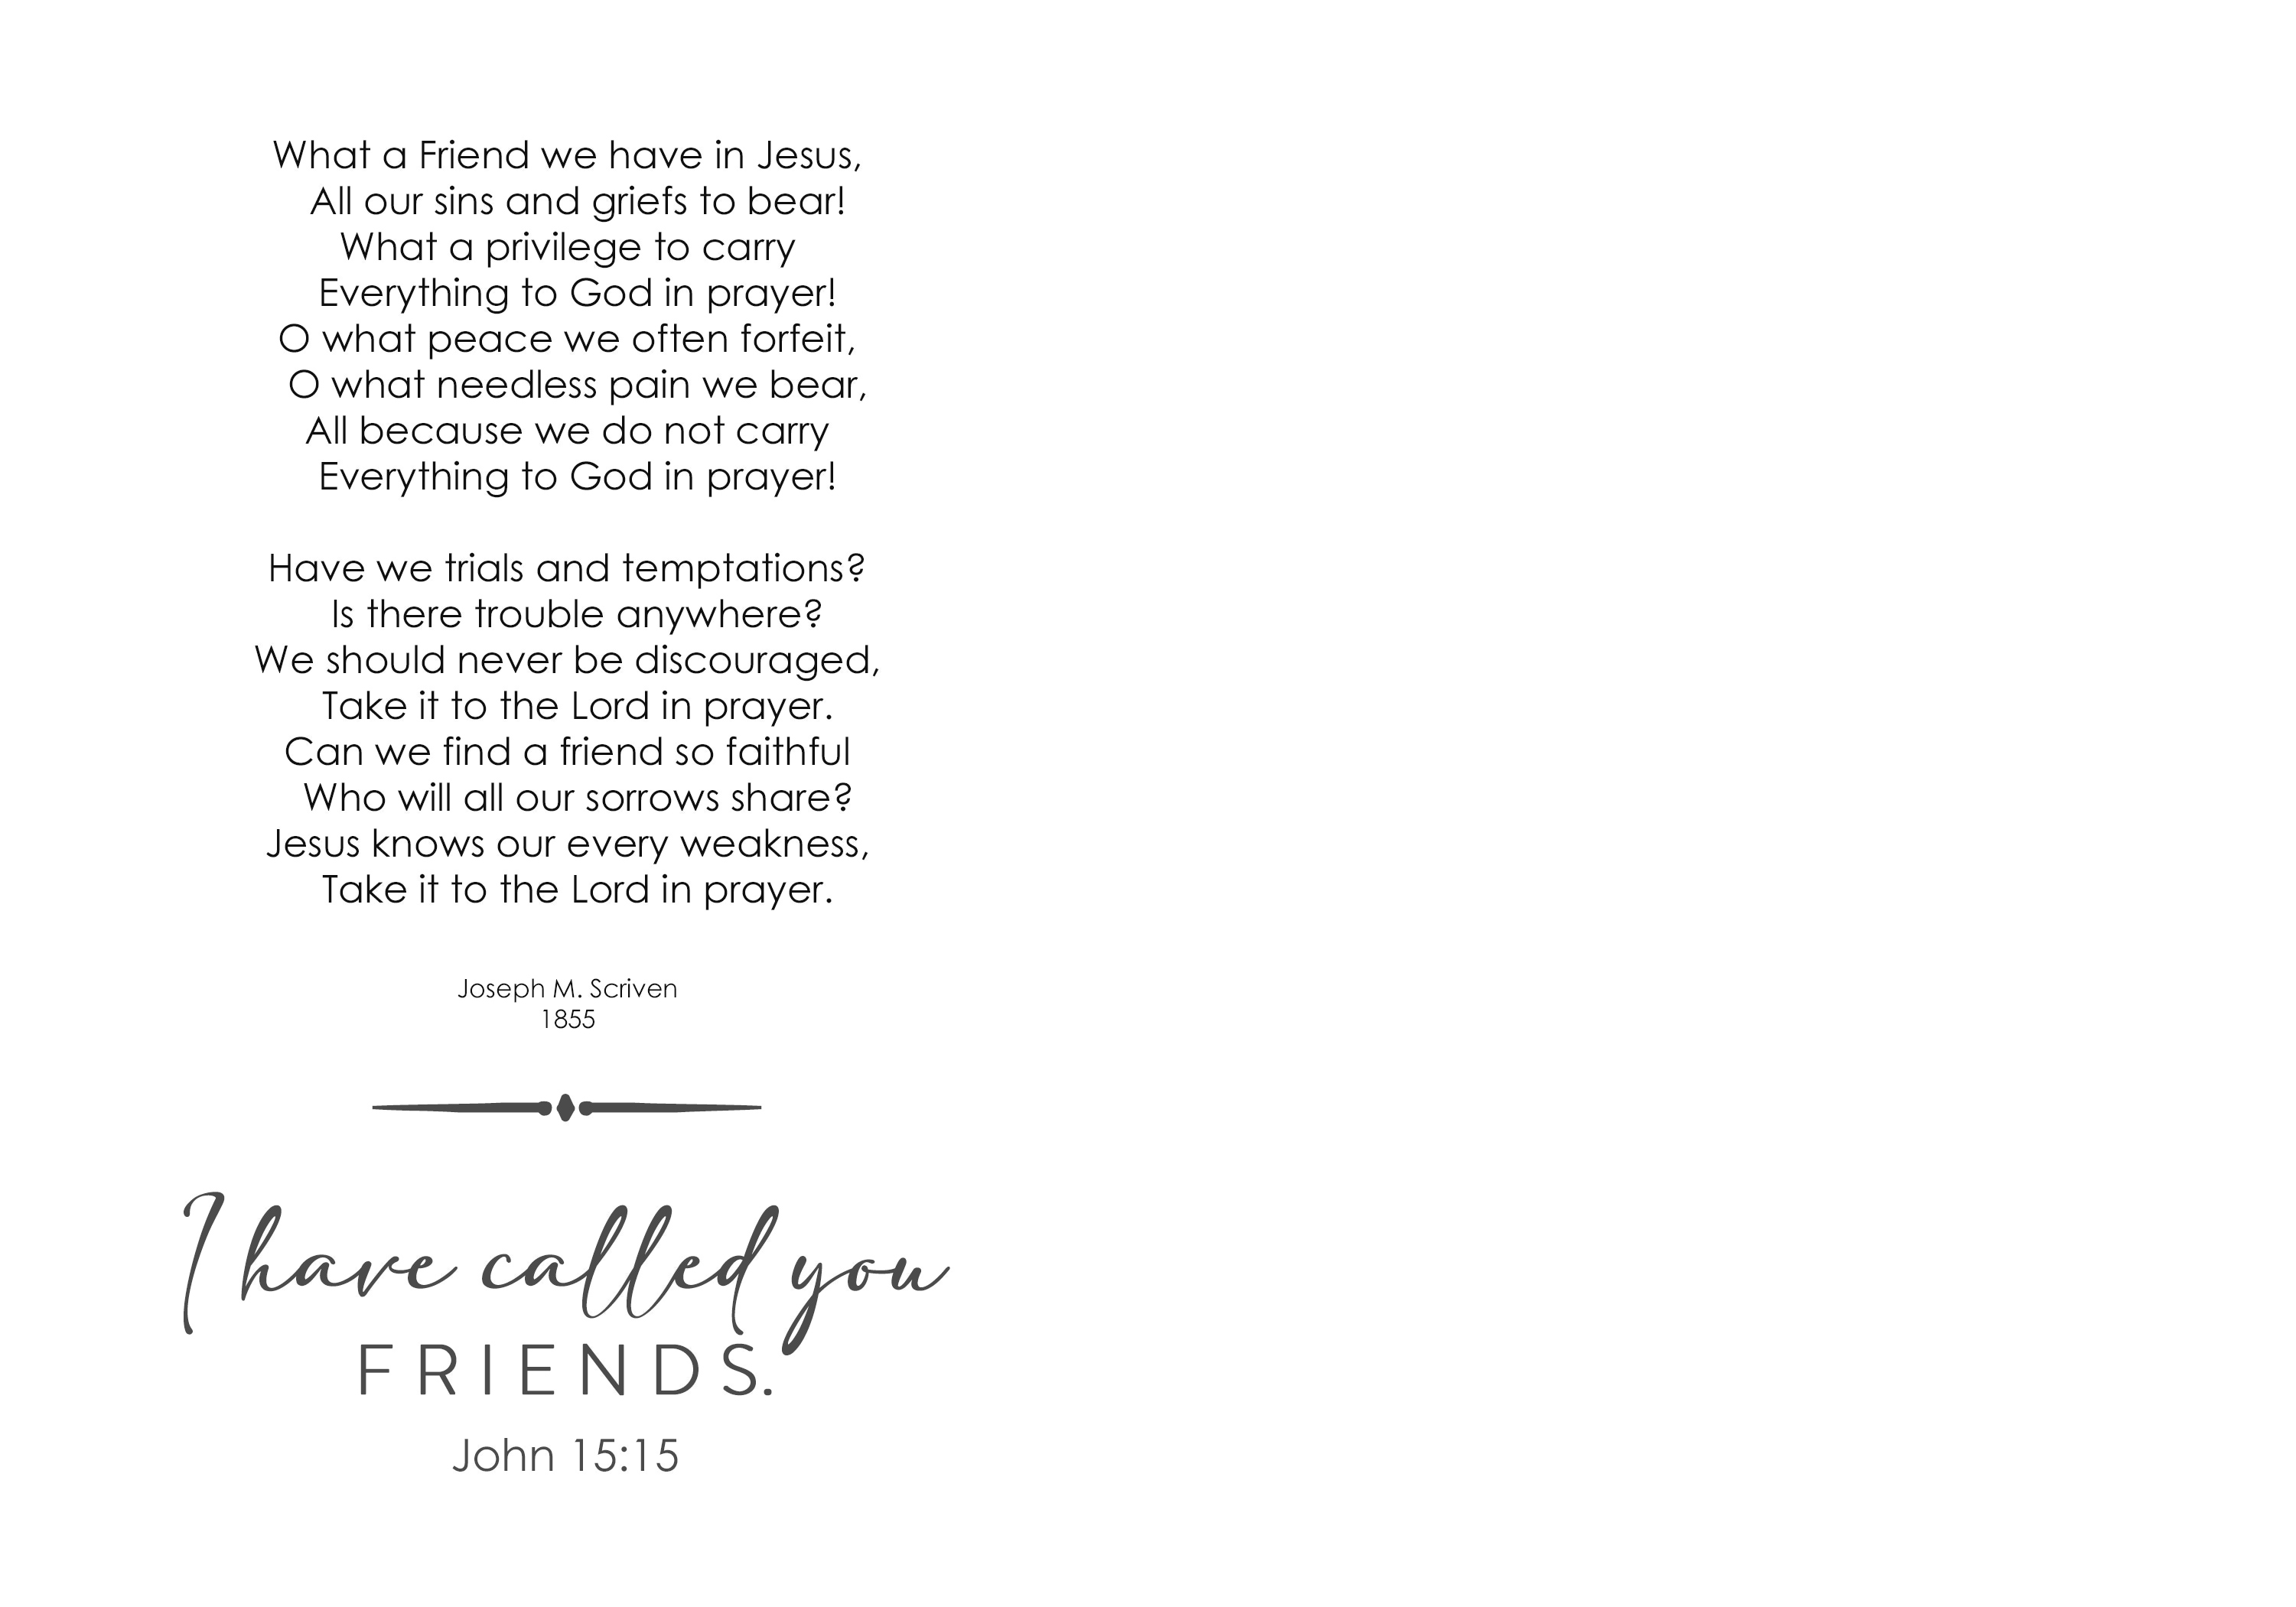 What a Friend we have in Jesus,
All our sins and griefs to bear!
What a privilege to carry
Everything to God in prayer!
O what peace we often forfeit,
O what needless pain we bear,
All because we do not carry
Everything to God in prayer!
Have we trials and temptations?
Is there trouble anywhere?
We should never be discouraged,
Take it to the Lord in prayer.
Can we find a friend so faithful
Who will all our sorrows share?
Jesus knows our every weakness,
Take it to the Lord in prayer.
Joseph M. Scriven
1855
I have called you
FRIENDS.
John 15:15